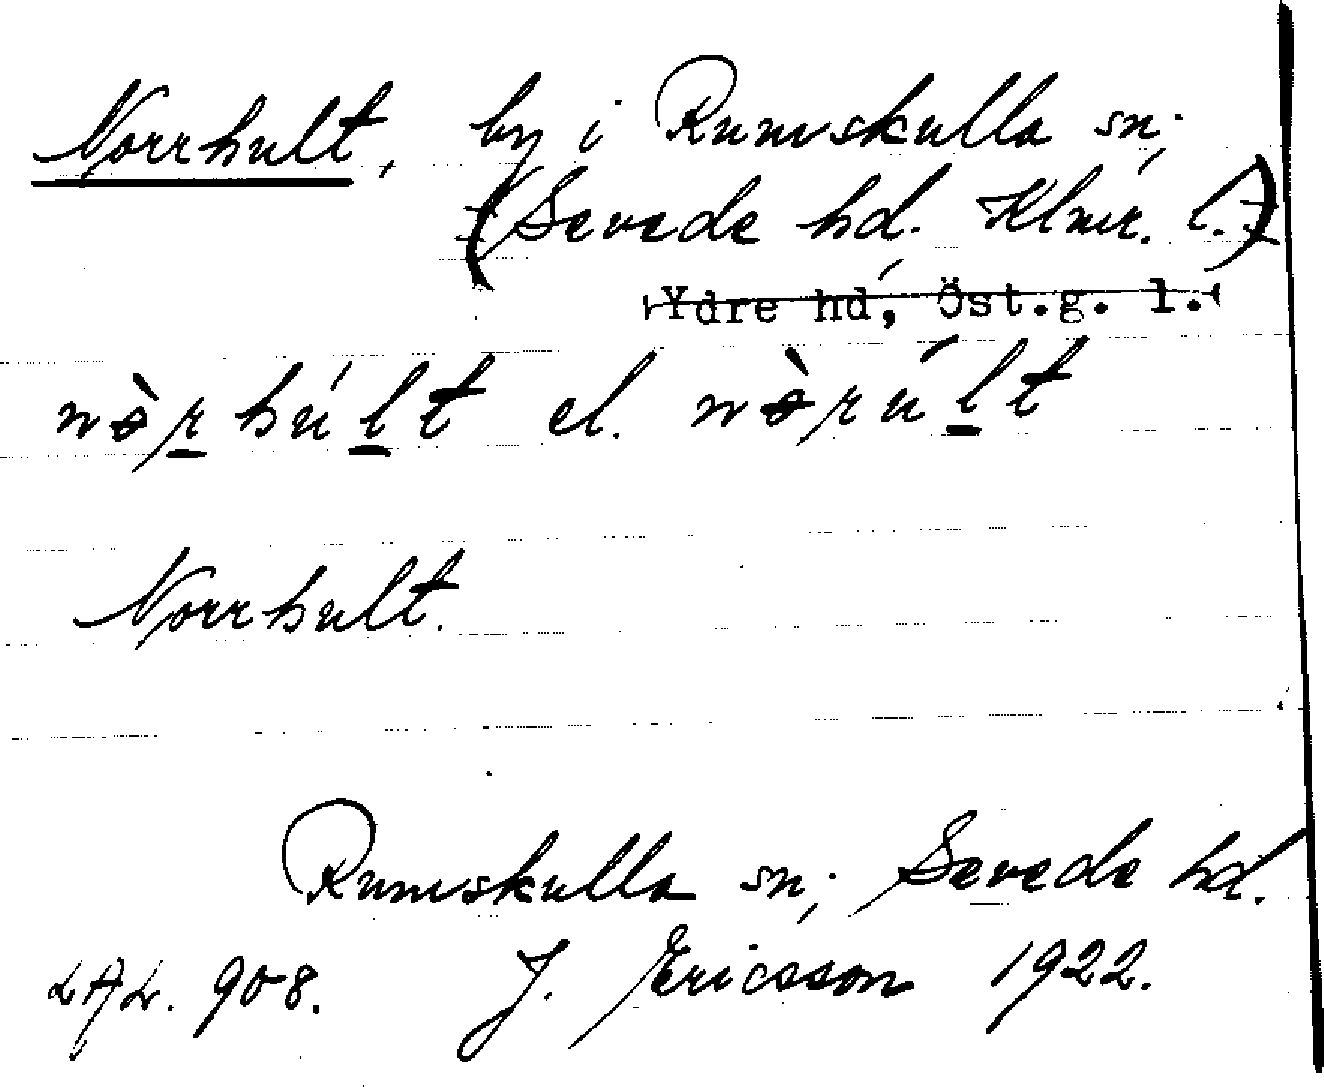 Norrhult, by i Rumskulla sn;
(Sevede hd. Klmr. l.)
Ydre hd, Öst.g. l.
nòrhúlt el. nòrúlt
Norrhult.
Rumskulla sn; Sevede hd.
908. J. Ericsson 1922.